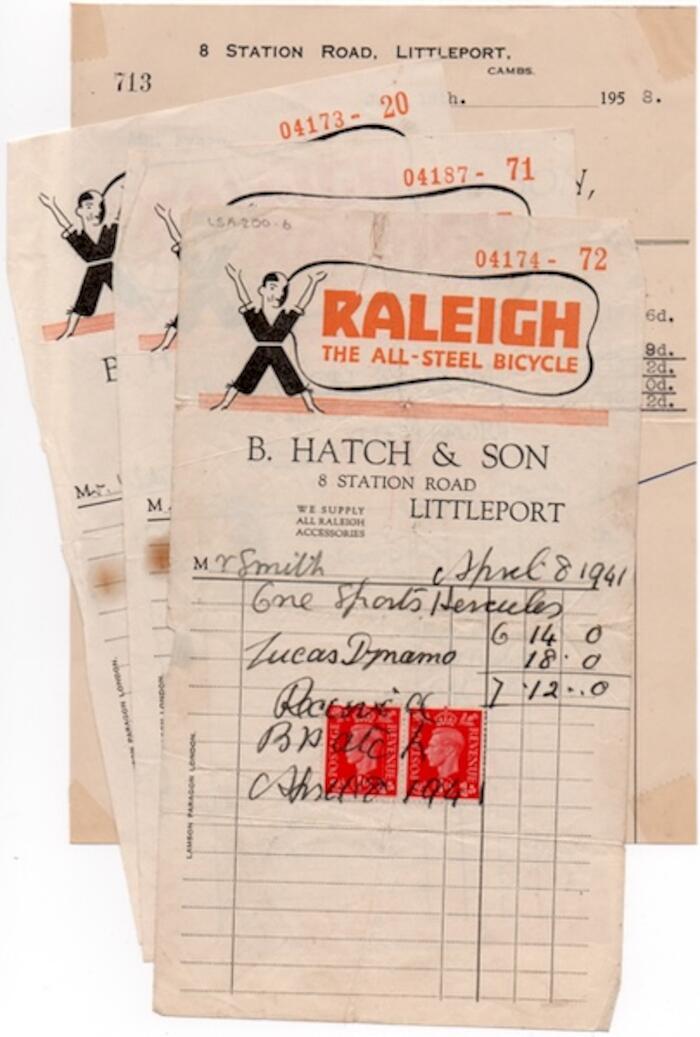 8 STATION ROAD, LITTLEPORT,
CAMBS.
713
th.
195 8.
04173 - 20
04187 - 71
LSA-200-6
04174 - 72
6d.
9d.
2d.
0d.
2d.
RALEIGH
THE ALL-STEEL BICYCLE
B. HATCH & SON
8 STATION ROAD
WE SUPPLY
ALL RALEIGH
ACCESSORIES
LITTLEPORT
M
M r Smith April 8 1941
One Sports Hercules
6 14 0
Lucas Dynamo 18. 0
7.12..0
Received
B Hatch
April 8 1941
REVENUE
REVENUE
LAMSON PARAGON LONDON.
PARAGON LONDON.